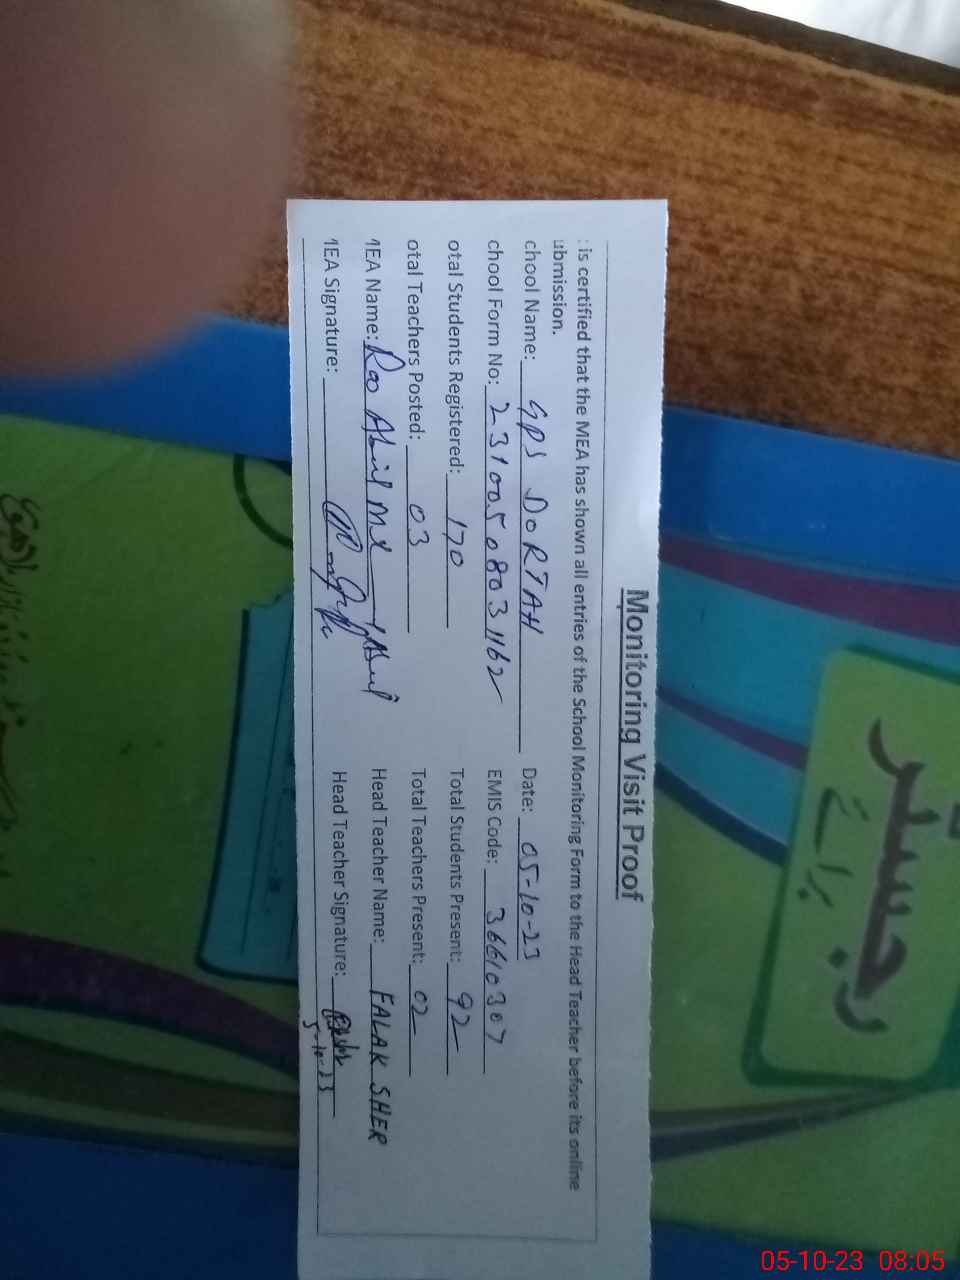 Monitoring Visit Proof
: is certified that the MEA has shown all entries of the School Monitoring Form to the Head Teacher before its online
ubmission.
chool Name: GPS DORTAH Date: 05-10-23
chool Form No: 23100508031162 EMIS Code: 36610307
otal Students Registered: 170 Total Students Present: 92
otal Teachers Posted: 03 Total Teachers Present: 02
1EA Name: Rao Head Teacher Name: FALAK SHER
1EA Signature: Head Teacher Signature:
5-10-23
رجسٹر
برائے
05-10-23 08:05